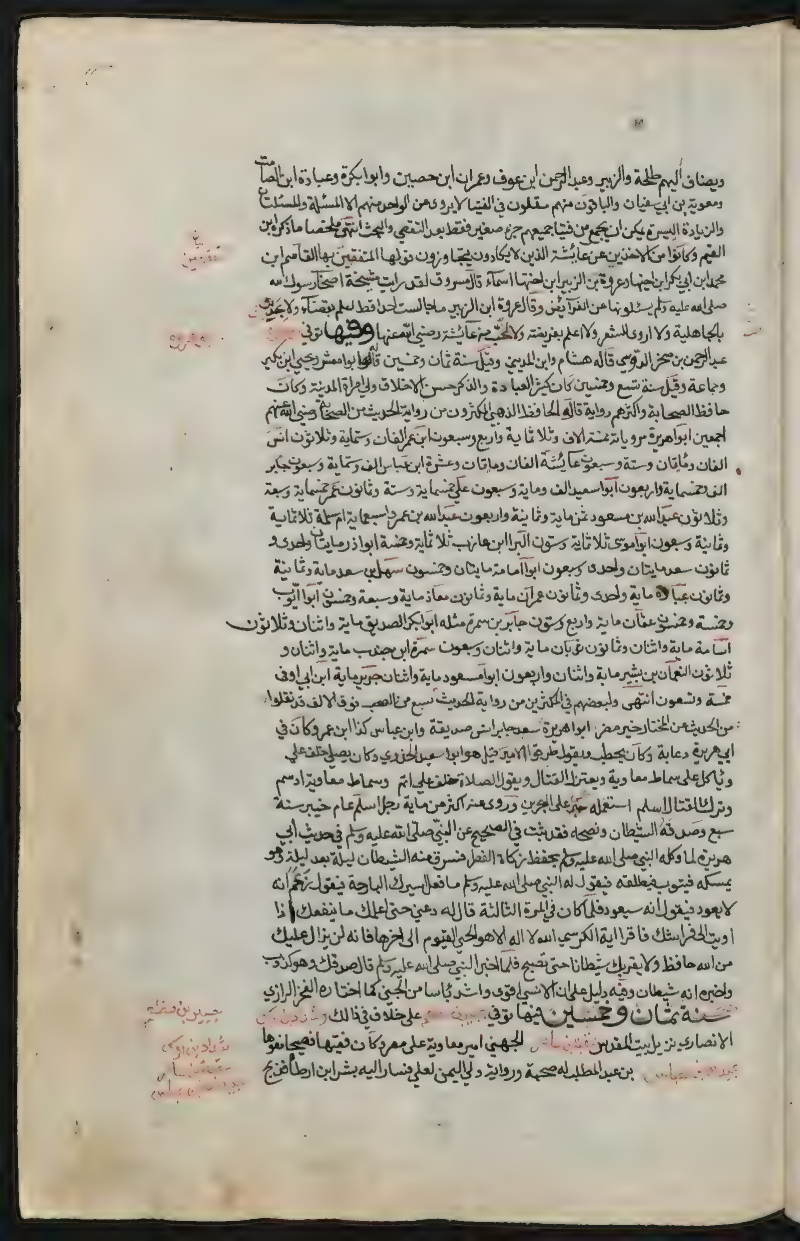 ويضاف اليهم طلحة والزبير وعبد الرحمن ابن عوف وعمران ابن حصين وابوا بكرة وعبادة ابن الصامت
ومعوية بن ابي سفيان والباقون منهم مقلون في الفتيا لا يروى عن الواحد منهم الا المسئلة والمسئلتان
والزيادة اليسيرة يمكن ان يجمع من فتيا جميعهم جزء صغير فقط بعد التقصي والبحث انتهى ملخصا ما ذكره ابن
القيم وكانوا من الاخذين عن عايشة الذين لا يكادون يتجاوزون قولها المتفقين بها القاسم ابن
محمد ابن ابي بكر ابن اخيها وعروة بن الزبير ابن اختها اسماء قال مسروق لقد رايت مشيخة اصحاب رسول الله
صلى الله عليه وسلم يسئلونها عن الفرايض وقال عروة ابن الزبير ما جالست احدا قط اعلم بقضاء ولا بحديث
بالجاهلية ولا اروى للشعر ولا اعلم بفريضة ولا طب من عايشة رضي الله عنها وفيها توفي
عبد الرحمن بن صخر الدوسي قاله هشام وابن المديني وقيل سنة ثمان وخمسين قاله ابوا معشر ويحيى ابن بكير
وجماعة وقيل سنة تسع وخمسين كان كثير العبادة والذكر حسن الاخلاق ولي امرة المدينة وكان
حافظ الصحابة واكثرهم رواية قال الحافظ الذهبي المكثرون من رواية الحديث من الصحابة رضي الله عنهم
اجمعين ابوا هريرة مروياته خمسة الاف وثلاثماية واربع وسبعون ابن عمر الفان وستماية وثلاثون انس
الفان ومايتان وستة وسبعون عايشة الفان ومايتان وعشرة ابن عباس الف وستماية وسبعون جابر
الف وخمسماية واربعون ابوا سعيد الف وماية وسبعون علي خمسماية وستة وثمانون عمر خمسماية وسبعة
وثلاثون عبد الله بن مسعود ثمنماية وثمانية واربعون عبد الله بن عمرو سبعماية ام سلمة ثلاثماية
وثمانية وسبعون ابوا موسى ثلاثماية وستون البرا ابن عازب ثلاثماية وخمسة ابوا ذر مايتان واحدى و
ثمانون سعد مايتان واحدى وسبعون ابوا امامة مايتان وخمسون سهل بن سعد ماية وثمانية
وثمانون عبادة ماية واحدى وثمانون عمران ماية وثمانون معاذ ماية وسبعة وخمسون ابوا ايوب
وخمسة وخمسون عثمان ماية واربع وستون جابر بن سمرة مثله ابوا بكر الصديق ماية واثنان وثلاثون
اسامة ماية واثنان وثمانون ثوبان ماية واثنان وسبعون سمرة ابن جندب ماية واثنان و
ثلاثون النعمان بن بشير ماية واثنان واربعون ابوا مسعود ماية واثنان جرير ماية ابن ابي اوفى
خمسة وتسعون انتهى ولبعضهم في المكثرين من رواية الحديث سبع من الصحب فوق الالف قد نقلوا
من الحديث عن المختار خير مضر ابوا هريرة سعد جابر انس صديقة وابن عباس كذا ابن عمر وكان في
ابي هريرة دعابة وكان يخطب ويقول طرقوا للامير قيل هو ابوا سعيد الخدري وكان يصلي خلف علي
وياكل على سماط معاوية ويعتزل القتال ويقول الصلاة خلف علي اتم وسماط معاوية ادسم
وترك القتال اسلم استعمله عمر على البحرين وروى عنه اكثر من ماية رجل اسلم عام خيبر سنة
سبع وصدقه الشيطان ونصحه فقد ثبت في الصحيح عن النبي صلى الله عليه وسلم في حديث ابي
هريرة لما وكله النبي صلى الله عليه وسلم بحفظ زكاة الفطر فسرق منه الشيطان ليلة بعد ليلة وهو
يمسكه فيتوب فيطلقه فيقول له النبي صلى الله عليه وسلم ما فعل اسيرك البارحة فيقول زعم انه
لا يعود فيقول انه سيعود فلما كان في المرة الثالثة قال له دعني حتى اعلمك ما ينفعك اذا
اويت الى فراشك فاقرا اية الكرسي الله لا اله الا هو الحي القيوم الى اخرها فانه لن يزال عليك
من الله حافظ ولا يقربك شيطانا حتى تصبح فلما اخبر النبي صلى الله عليه وسلم قال صدقك وهو كذوب
واخبره انه شيطان وفيه دليل على ان الانسي اقوى واشد باسا من الجني كما اختاره الفخر الرازي
سنة ثمان وخمسين فيها توفي على خلاف في ذالك
الانصاري نزيل بيت المقدس الجهني امير معاوية على مصر وكان فقيها فصيحا مفوها
بن عبد المطلب له صحبة ورواية ولي اليمن لعلي فسار اليه بشر ابن ارطاة فذبح